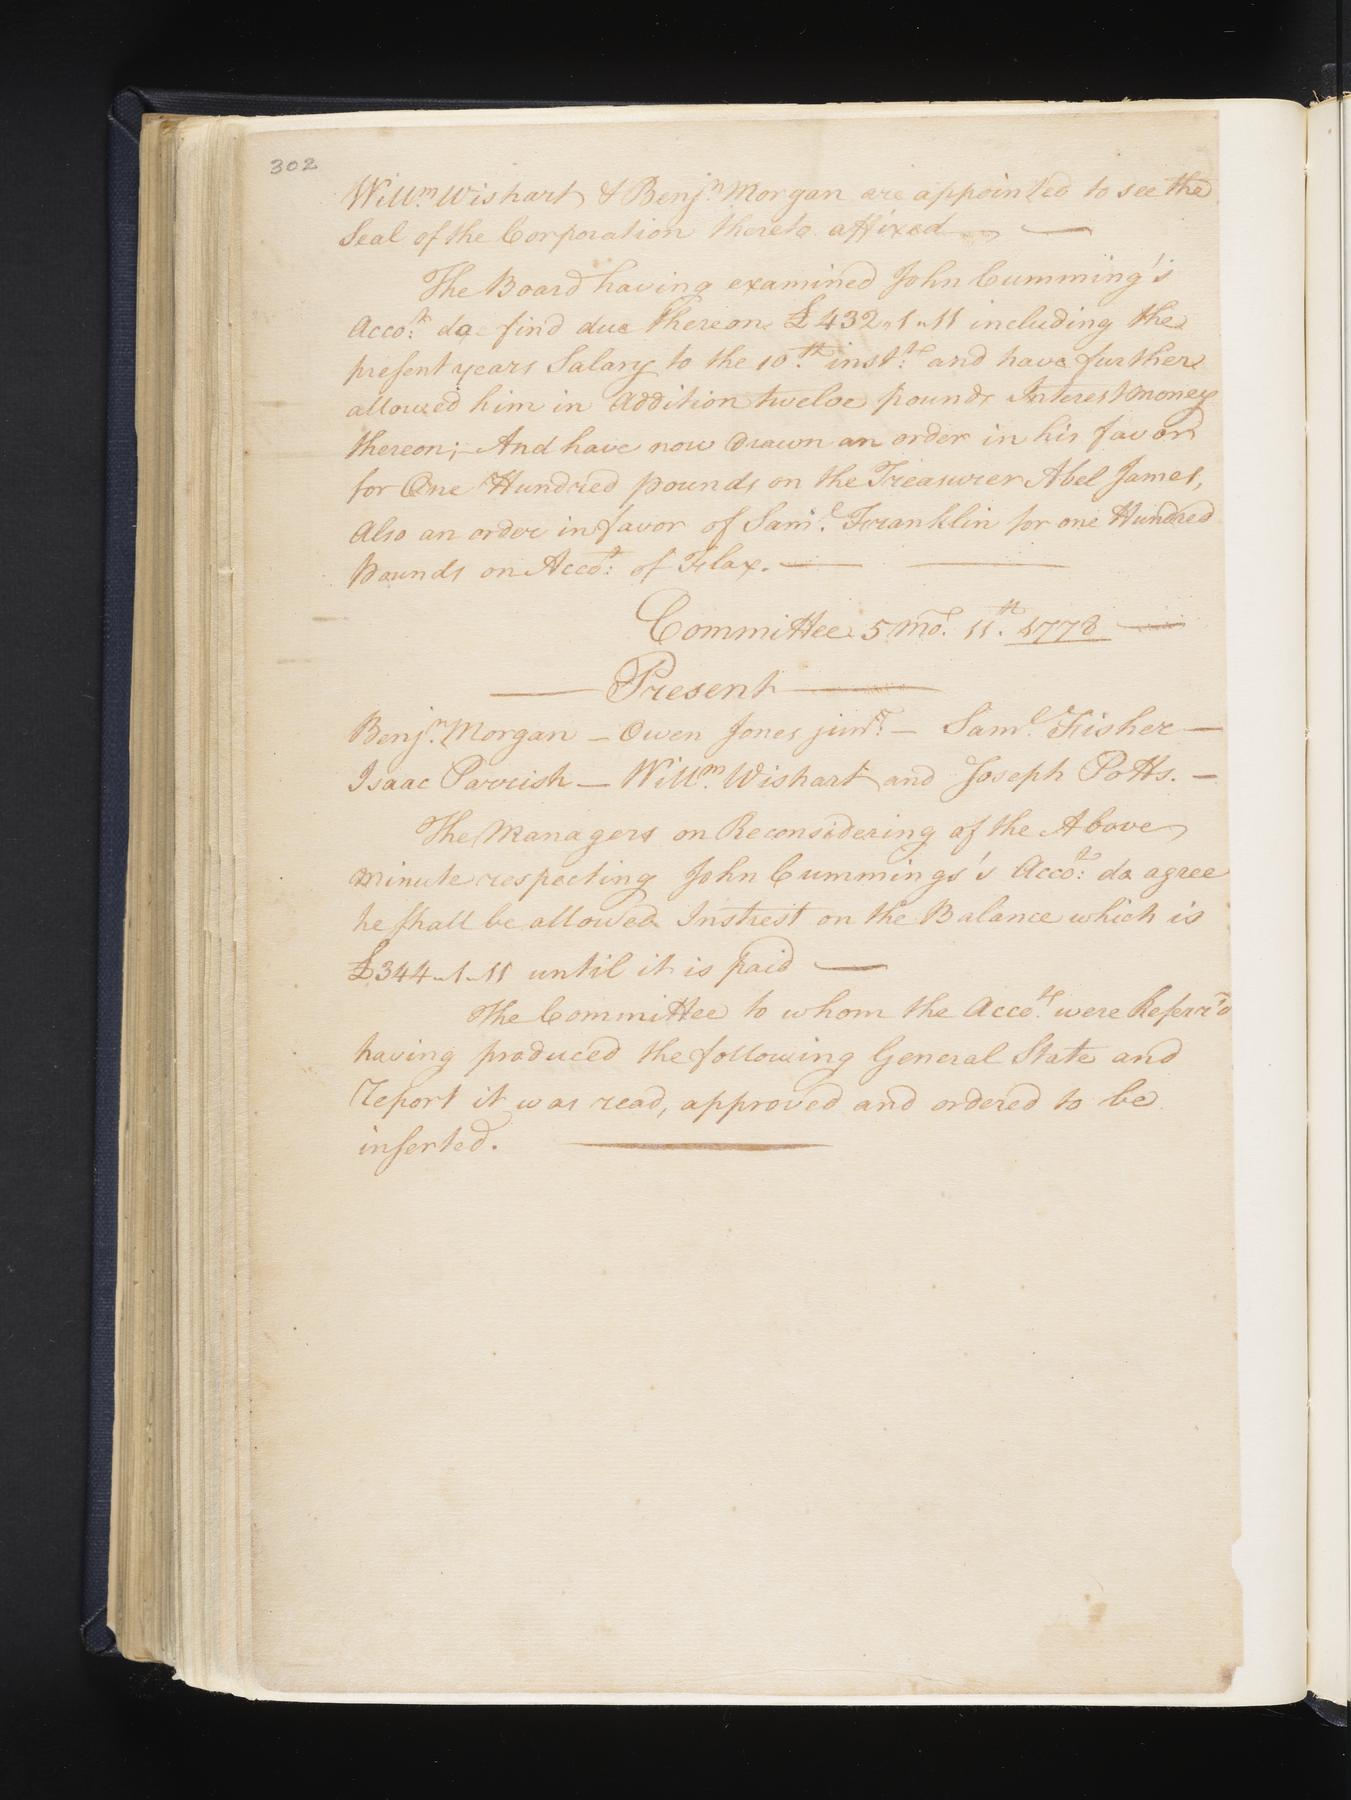 302
Willm. Wishart & Benjn. Morgan are appointed to see the
Seal of the Corporation thereto affixed —
The Board having examined John Cumming's
Accots. do find due thereon £432„1„11 including the
present years Salary to the 10th. instt. and have further
allowed him in Addition twelve pounds Interest money
thereon; And have now drawn an order in his favor
for One Hundred pounds on the Treasurer Abel James,
Also an order in favor of Saml. Franklin for one Hundred
pounds on Accot: of Flax. — —
Committee 5 mo. 11th. 1778 —
— Present —
Benjn. Morgan — Owen Jones junr. — Saml. Fisher —
Isaac Parrish — Willm. Wishart and Joseph Potts. —
The Managers on Reconsidering of the Above
minute respecting John Cummings's Accot: do agree
he shall be allowed Instrest on the Balance which is
£344„1„11 until it is paid —
The Committee to whom the Accots. were Referr'd
having produced the following General State and
Report it was read, approved and ordered to be
inserted. —